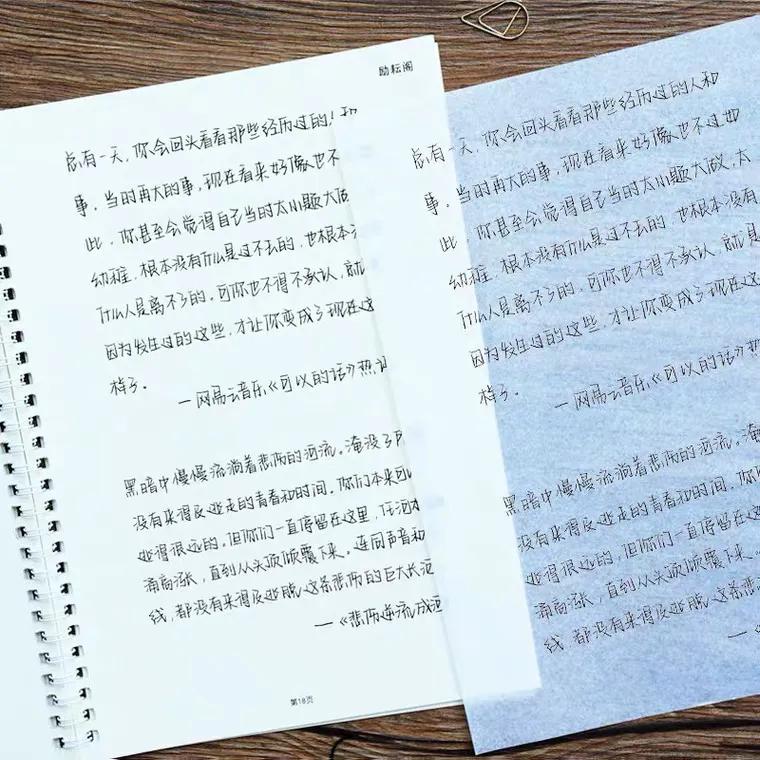 励耘阁
总有一天，你会回头看看那些经历过的人和
事，当时再大的事，现在看来好像也不
此，你甚至会觉得自己当时太小题大
幼稚，根本没有什么是过不去的，也根本没
什么人是离不了的，可你也不得不承认，就
因为发生过的这些，才让你变成了现在这
样了。
—网易云音乐《可以的话》热评
黑暗中慢慢流淌着悲伤的河流。淹没了
没有来得及逃走的青春和时间。你们本来可
逃得很远的。但你们一直停留在这里，任河
涌高涨，直到从头顶倾覆下来。连同声音和
线，都没有来得及逃脱，这条悲伤的巨大长河
—《悲伤逆流成河
第18页
总有一天，你会回头看看那些经历过的人和
事，当时再大的事，现在看来好像也不过如
此，你甚至会觉得自己当时太小题大做，太
幼稚，根本没有什么是过不去的，也根本没有
什么人是离不了的，可你也不得不承认，就是
因为发生过的这些，才让你变成了现在这
样了。
—网易云音乐《可以的话》热评
黑暗中慢慢流淌着悲伤的河流。淹
没有来得及逃走的青春和时间，你
逃得很远的，但你们一直停留在这
涌高涨，直到从头顶倾覆下来。
线，都没有来得及逃脱，这条悲
—《